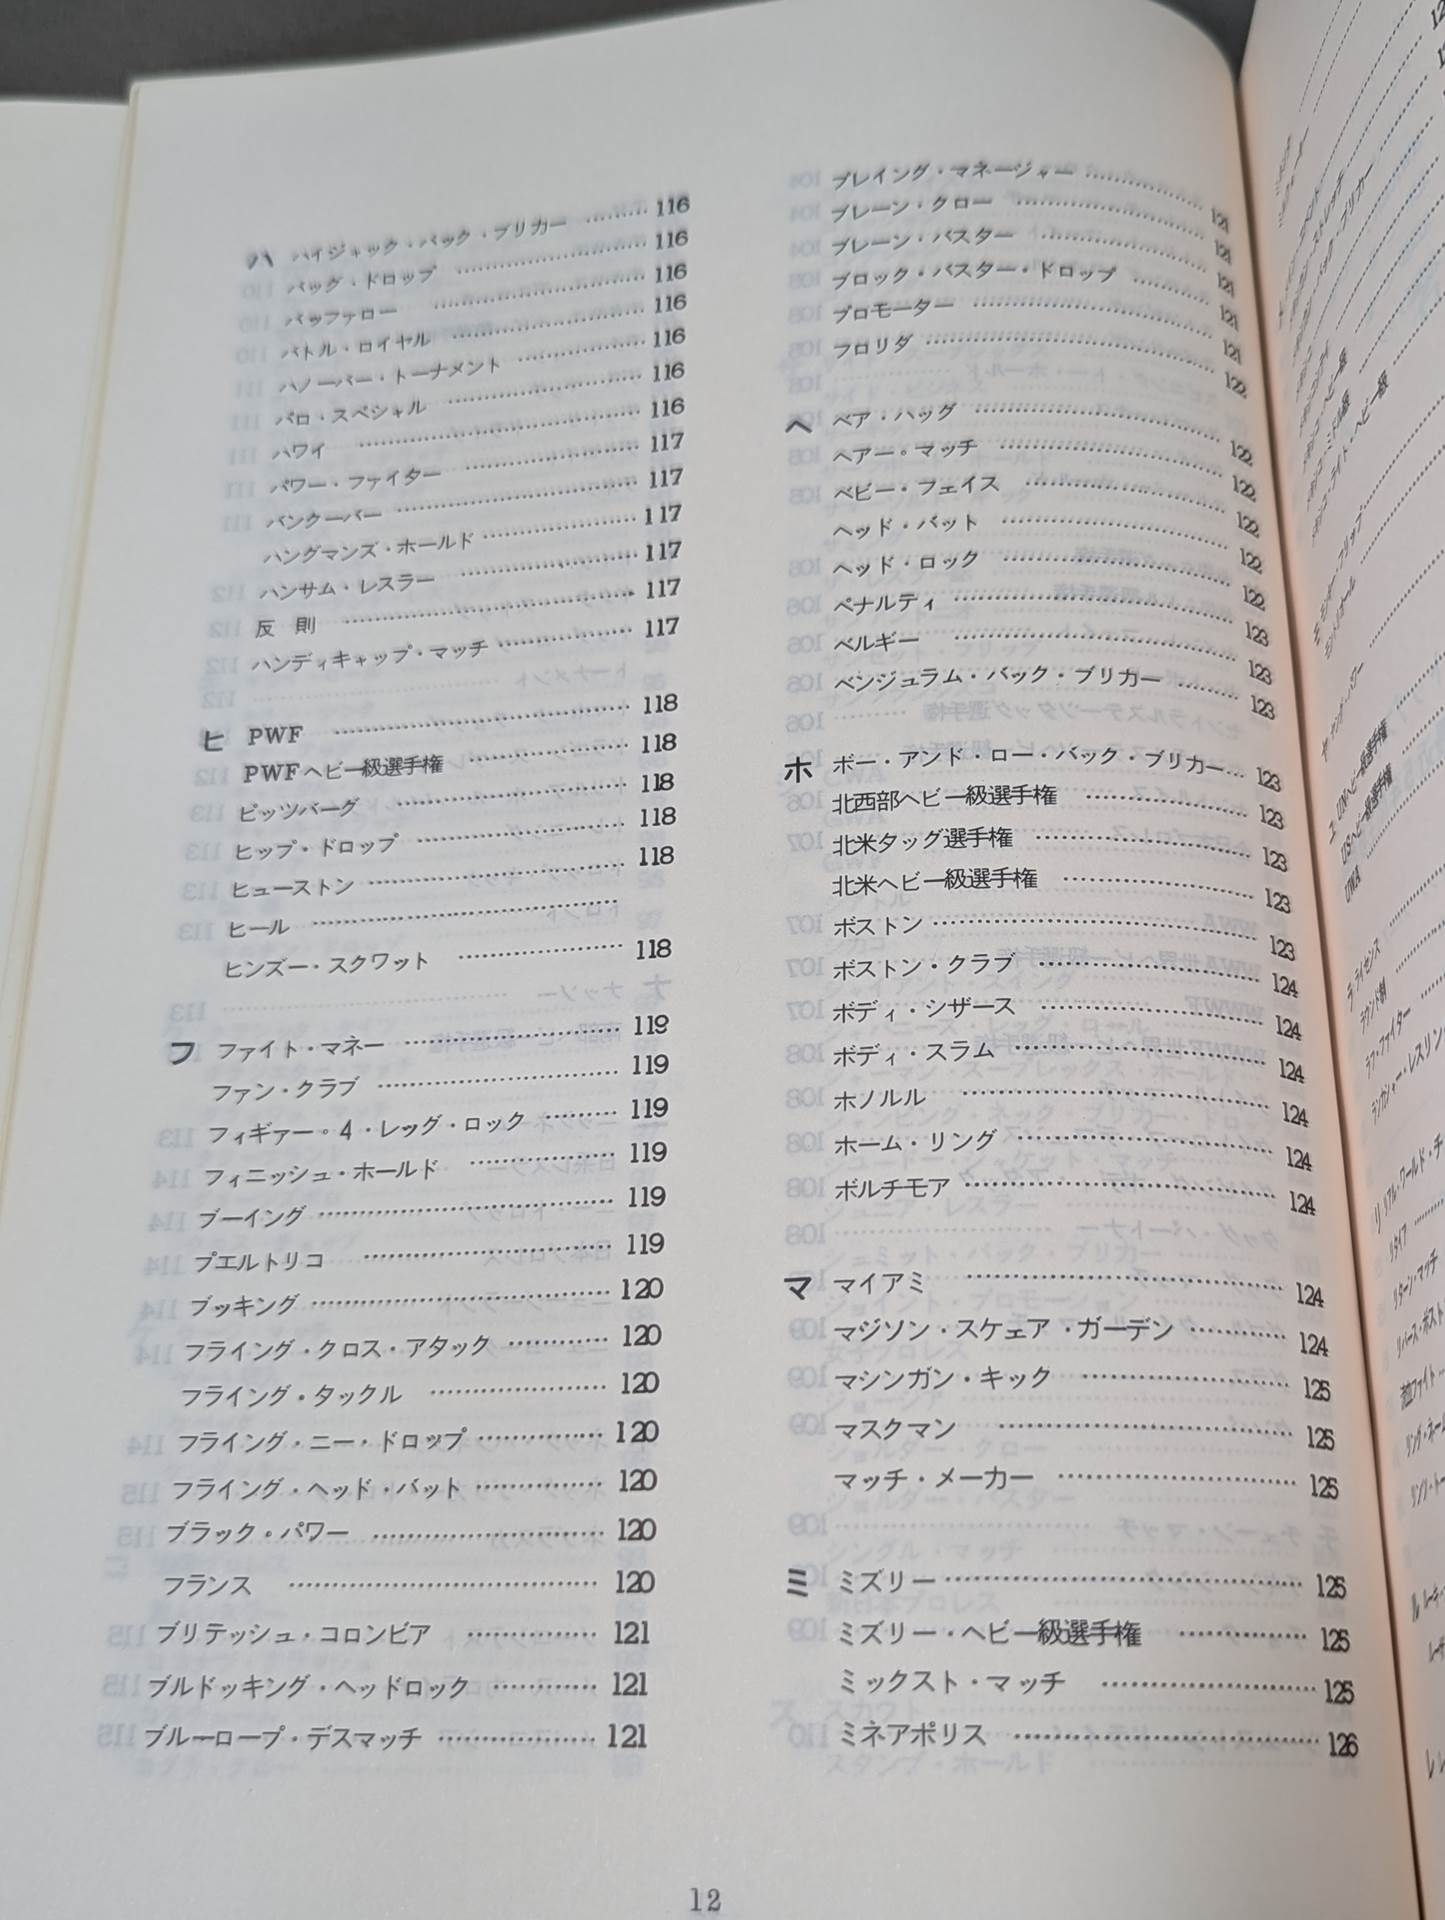 ハ ハイジャック・バック・ブリカー ……… 116
バッグ・ドロップ ……… 116
バッファロー ……… 116
バトル・ロイヤル ……… 116
ハノーバー・トーナメント ……… 116
バロ・スペシャル ……… 116
ハワイ ……… 116
パワー・ファイター ……… 117
バンクーバー ……… 117
ハングマンズ・ホールド ……… 117
ハンサム・レスラー ……… 117
反 則 ……… 117
ハンディキャップ・マッチ ……… 117
ヒ PWF ……… 118
PWFヘビー級選手権 ……… 118
ピッツバーグ ……… 118
ヒップ・ドロップ ……… 118
ヒューストン ……… 118
ヒール ………
ヒンズー・スクワット ……… 118
フ ファイト・マネー ……… 119
ファン・クラブ ……… 119
フィギァー。4・レッグ・ロック ……… 119
フィニッシュ・ホールド ……… 119
ブーイング ……… 119
プエルトリコ ……… 119
ブッキング ……… 120
フライング・クロス・アタック ……… 120
フライング・タックル ……… 120
フライング・ニー・ドロップ ……… 120
フライング・ヘッド・バット ……… 120
ブラック・パワー ……… 120
フランス ……… 120
ブリテッシュ・コロンビア ……… 121
ブルドッキング・ヘッドロック ……… 121
ブルーロープ・デスマッチ ……… 121
プレイング・マネージャー ……… 121
ブレーン・クロー ……… 121
ブレーン・バスター ……… 121
ブロック・バスター・ドロップ ……… 121
プロモーター ……… 121
フロリダ ……… 122
ヘ ベア・ハッグ ……… 122
ヘアー。マッチ ……… 122
ベビー・フェイス ……… 122
ヘッド・バット ……… 122
ヘッド・ロック ……… 122
ペナルティ ……… 123
ベルギー ……… 123
ペンジュラム・バック・ブリカー ……… 123
ホ ボー・アンド・ロー・バック・ブリカー … 123
北西部ヘビー級選手権 ……… 123
北米タッグ選手権 ……… 123
北米ヘビー級選手権 ……… 123
ボストン ……… 123
ボストン・クラブ ……… 124
ボディ・シザース ……… 124
ボディ・スラム ……… 124
ホノルル ……… 124
ホーム・リング ……… 124
ボルチモア ……… 124
マ マイアミ ……… 124
マジソン・スケェア・ガーデン ……… 124
マシンガン・キック ……… 125
マスクマン ……… 125
マッチ・メーカー ……… 125
ミ ミズリー ……… 125
ミズリー・ヘビー級選手権 ……… 125
ミックスト・マッチ ……… 125
ミネアポリス ……… 126
12
ユ UNヘビー級選手権
USヘビー級選手権
UWA
ラ ライセンス
ラウンド制
ラフ・ファイター
リ リアル・ワールド・チ
リタイア
リターン・マッチ
リバース・ポスト
流血ファイト
リング・ネーム